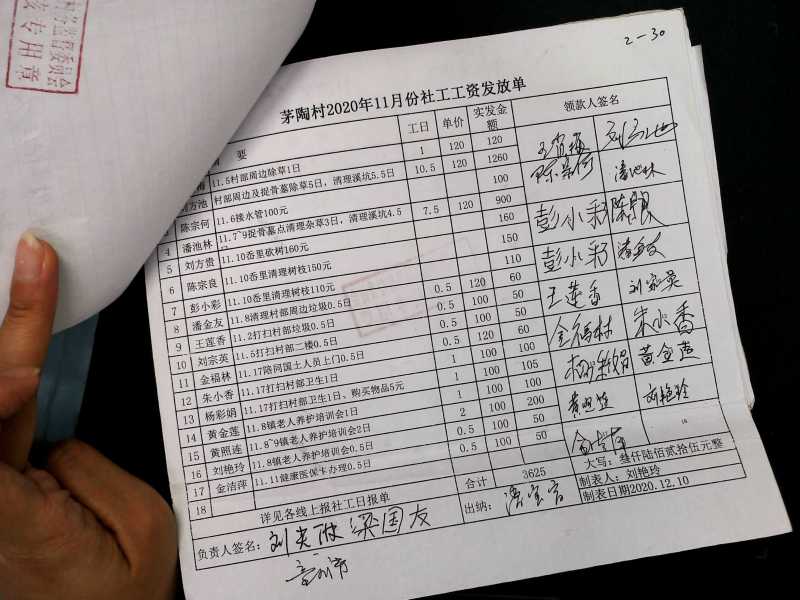 2-30
专用章
茅陶村2020年11月份社工工资发放单
要 工日 单价 实发金额 领款人签名
11.5村部周边除草1日 1 120 120
刘方池 村部周边及捉骨墓除草5日，清理溪坑5.5日 10.5 120 1260
陈宗何 11.6接水管100元 100
4 潘池林 11.7~9捉骨墓点清理杂草3日，清理溪坑4.5 7.5 120 900
5 刘方贵 11.10岙里砍树160元 160
6 陈宗良 11.10岙里清理树枝150元 150
7 彭小彩 11.10岙里清理树枝110元 110
8 潘金友 11.8清理村部周边垃圾0.5日 0.5 120 60
9 王莲香 11.2打扫村部垃圾0.5日 0.5 100 50
10 刘宗英 11.5打扫村部二楼0.5日 0.5 100 50
11 金福林 11.17陪同国土人员上门0.5日 0.5 120 60
12 朱小香 11.17打扫村部卫生1日 1 100 100
13 杨彩娟 11.17打扫村部卫生1日、购买物品5元 1 100 105
14 黄金莲 11.8镇老人养护培训会1日 1 100 100
15 黄照连 11.8~9镇老人养护培训会2日 2 100 200
16 刘艳玲 11.8镇老人养护培训会0.5日 0.5 100 50
17 金洁萍 11.11健康医保卡办理0.5日 0.5 100 50
18
彭小彩
彭小彩
王莲香 刘宗英
金福林 朱小香
杨彩娟 黄金莲
刘艳玲
详见各线上报社工日报单 合计 3625 大写：叁仟陆佰贰拾伍元整
负责人签名： 梁国友 出纳： 制表人：刘艳玲
制表日期2020.12.10